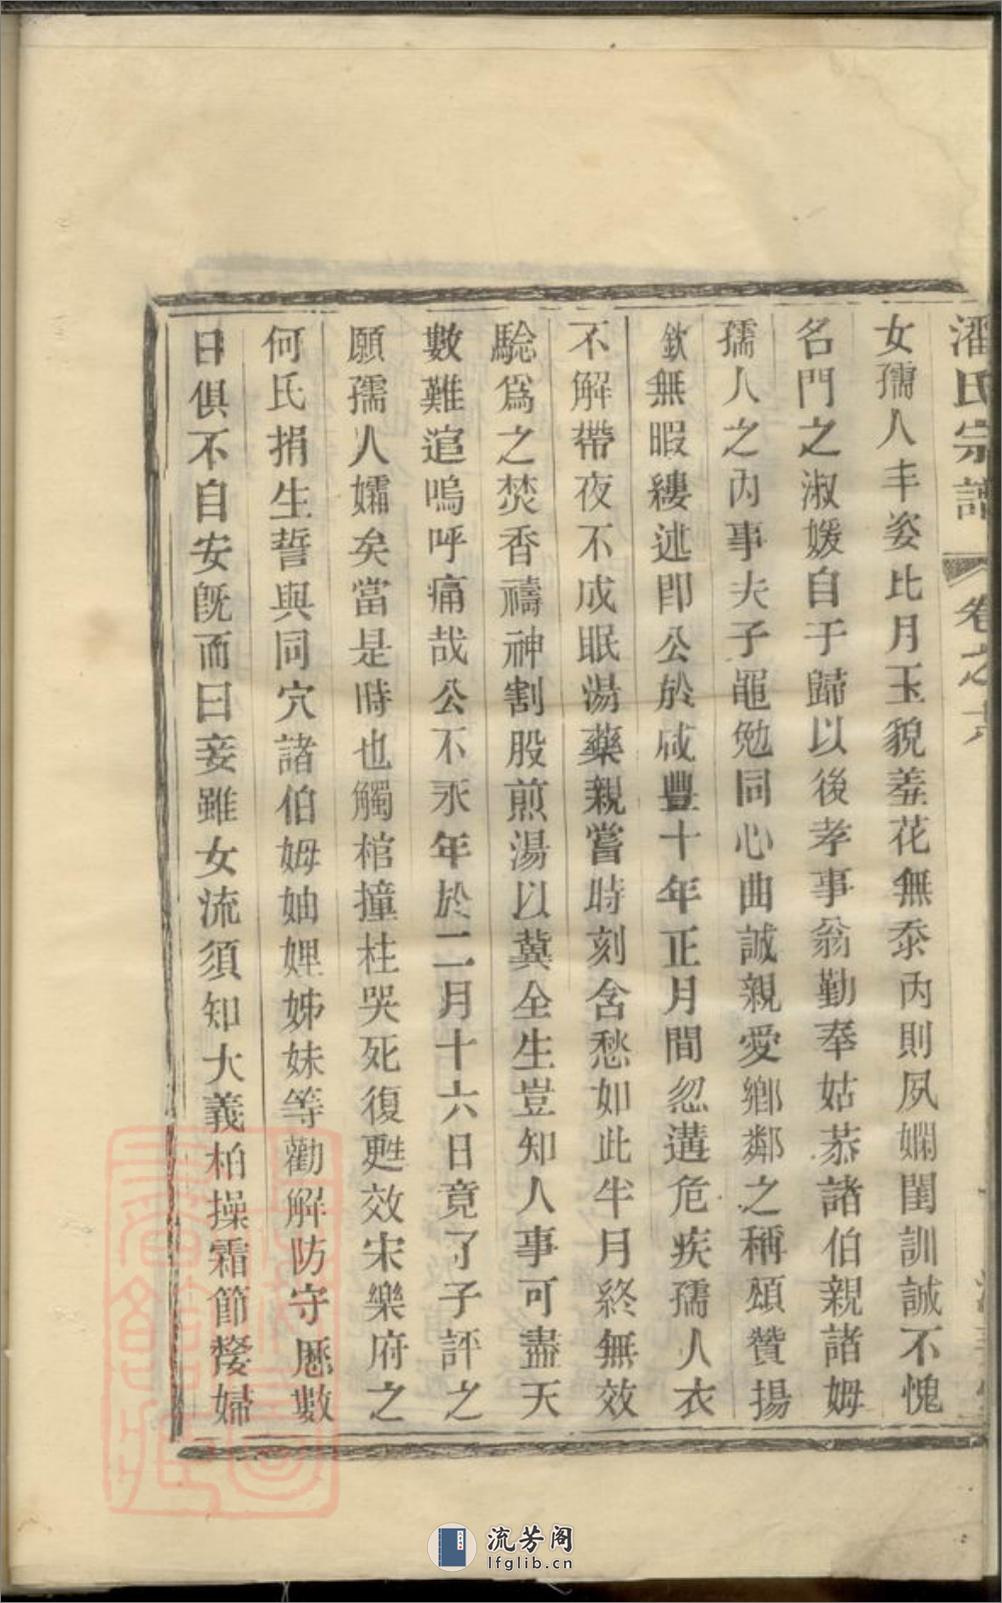 潘氏宗譜 卷之六
女孺人丰姿比月玉貌羞花無忝內則夙嫻閨訓誠不愧
名門之淑媛自于歸以後孝事翁勤奉姑恭諸伯親諸姆
孺人之內事夫子黽勉同心曲誠親愛鄉鄰之稱頌贊揚
欽無暇縷述卽公於咸豐十年正月間忽遘危疾孺人衣
不解帶夜不成眠湯藥親嘗時刻含愁如此半月終無效
騐爲之焚香禱神割股煎湯以冀全生豈知人事可盡天
數難逭嗚呼痛哉公不永年於二月十六日竟了子評之
願孺人孀矣當是時也觸棺撞柱哭死復甦效宋樂府之
何氏捐生誓與同穴諸伯姆妯娌姊妹等勸解防守歷數
日俱不自安旣而曰妾雖女流須知大義柏操霜節嫠婦
流芳阁
lfglib.cn